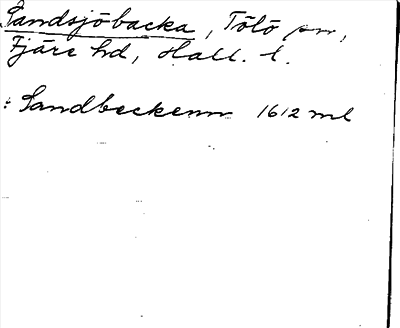 Sandsjöbacka, Tölö sn,
Fjäre hd, Hall. l.
: Sandbeckenn 1612 ml